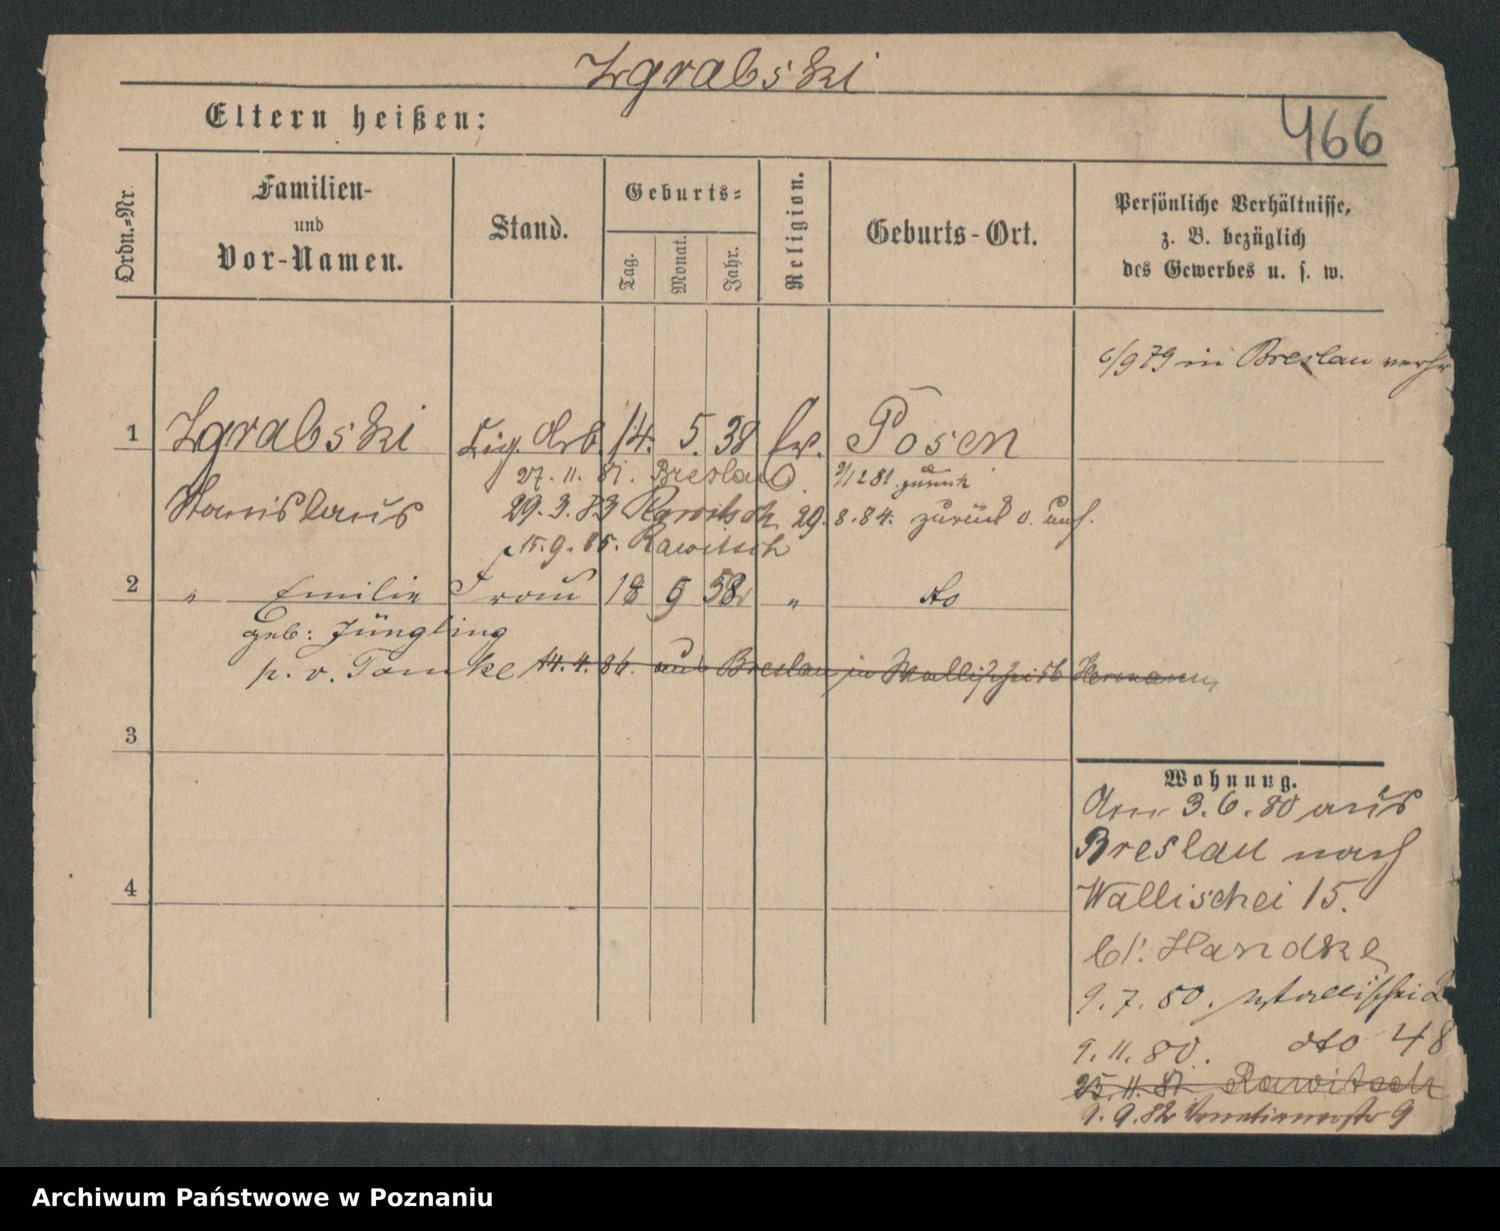 Zgrabski
Eltern heißen:
466
Ordn.-Nr.
Familien-
und
Vor-Namen.
Stand.
Geburts-
Tag.
Monat.
Jahr.
Religion.
Geburts-Ort.
Persönliche Verhältnisse,
z. B. bezüglich
des Gewerbes u. s. w.
6/9 79 in Breslau
1 Zgrabski Cig. Arb. 14. 5. 38 Posen
27. 11. 81. Breslau 2/12 81 zurück
Stanislaus 29. 3. 83 Rawitsch 29. 8. 84. zurück
15. 9. 85. Rawitsch
2 " Emilie Frau 18 9 58 " do
geb: Jüngling
p. v. Tomke 14. 4. 86. aus Breslau in Wallischei Hermann
3
4
Wohnung.
Am 3. 6. 80 aus
Breslau nach
Wallischei 15.
b/. Handke
9. 7. 80. Wallischei
9. 11. 80. dto 48
25. 11. 81. Rawitsch
9. 9. 82 Venetianerstr 9
Archiwum Państwowe w Poznaniu